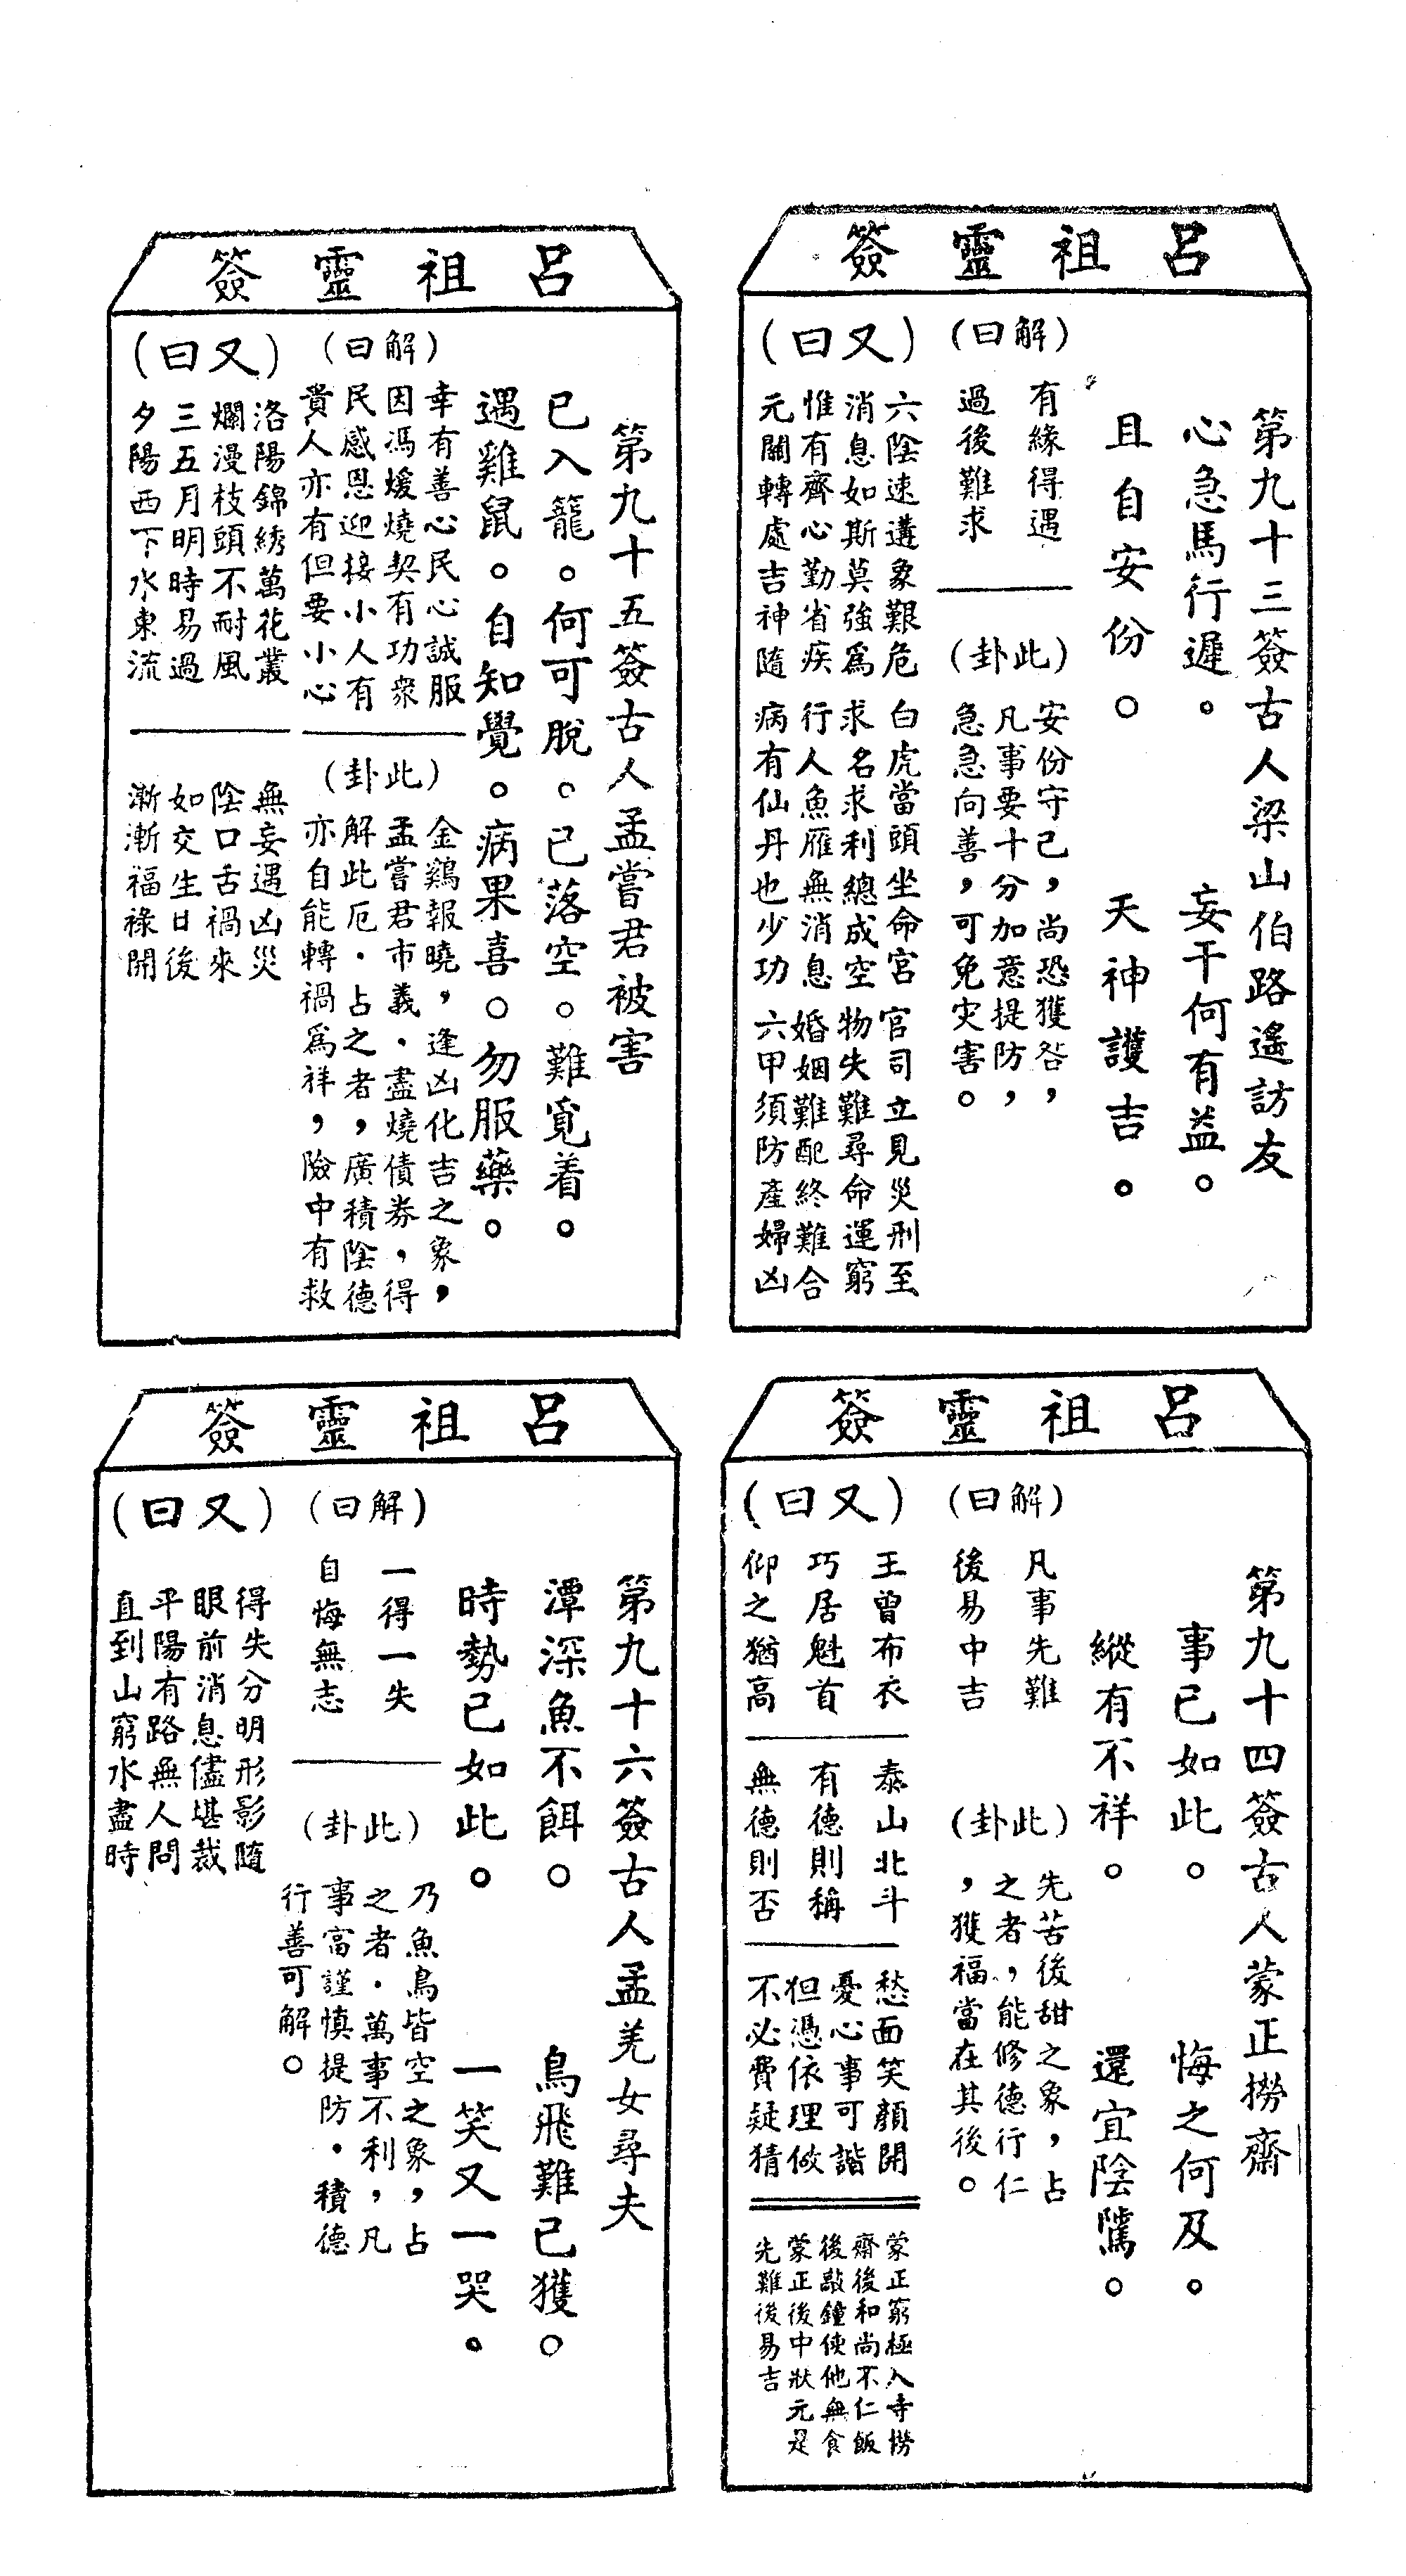 呂祖靈簽
第九十三簽古人梁山伯路遙訪友
心急馬行遲。妄干何有益。
且自安份。天神護吉。
(解曰)
有緣得遇
過後難求
(此卦)
安份守己,尚恐獲咎,
凡事要十分加意提防,
急急向善,可免灾害。
(又曰)
六陰速遘象艱危
消息如斯莫強爲
惟有齊心勤省疾
元關轉處吉神隨
白虎當頭坐命宮
求名求利總成空
行人魚雁無消息
病有仙丹也少功
官司立見災刑至
物失難尋命運窮
婚姻難配終難合
六甲須防產婦凶
呂祖靈簽
第九十四簽古人蒙正撈齋
事已如此。悔之何及。
縱有不祥。還宜陰騭。
(解曰)
凡事先難
後易中吉
(此卦)
先苦後甜之象,占
之者,能修德行仁
,獲福當在其後。
(又曰)
王曾布衣
巧居魁首
仰之猶高
泰山北斗
有德則稱
無德則否
愁面笑顏開
憂心事可諧
但憑依理做
不必費疑猜
蒙正窮極入寺撈
齋後和尚不仁飯
後敲鐘使他無食
蒙正後中狀元是
先難後易吉
呂祖靈簽
第九十五簽古人孟嘗君被害
已入籠。何可脫。已落空。難覓着。
遇雞鼠。自知覺。病果喜。勿服藥。
(解曰)
幸有善心民心誠服
因馮煖燒契有功衆
民感恩迎接小人有
貴人亦有但要小心
(此卦)
金鷄報曉,逢凶化吉之象,
孟嘗君市義.盡燒債券,得
解此厄.占之者,廣積陰德
亦自能轉禍爲祥,險中有救
(又曰)
洛陽錦綉萬花叢
爛漫枝頭不耐風
三五月明時易過
夕陽西下水東流
無妄遇凶災
陰口舌禍來
如交生日後
漸漸福祿開
呂祖靈簽
第九十六簽古人孟羌女尋夫
潭深魚不餌。鳥飛難已獲。
時勢已如此。一笑又一哭。
(解曰)
一得一失
自悔無志
(此卦)
乃魚鳥皆空之象,占
之者.萬事不利,凡
事富謹慎提防.積德
行善可解。
(又曰)
得失分明形影隨
眼前消息儘堪裁
平陽有路無人問
直到山窮水盡時